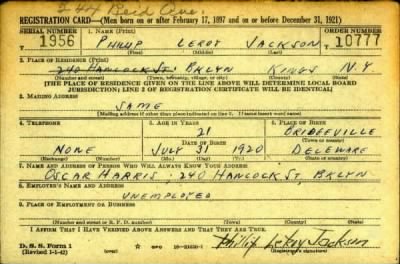 244 Reid Ave.
REGISTRATION CARD—(Men born on or after February 17, 1897 and on or before December 31, 1921)
SERIAL NUMBER 1. NAME (Print) ORDER NUMBER
1956 PHILIP LEROY JACKSON 10777
(First) (Middle) (Last)
2. PLACE OF RESIDENCE (Print)
240 HANCOCK ST. BKLYN KINGS N.Y.
(Number and street) (Town, township, village, or city) (County) (State)
[THE PLACE OF RESIDENCE GIVEN ON THE LINE ABOVE WILL DETERMINE LOCAL BOARD
JURISDICTION; LINE 2 OF REGISTRATION CERTIFICATE WILL BE IDENTICAL]
3. MAILING ADDRESS
SAME
[Mailing address if other than place indicated on line 2. If same insert word same]
4. TELEPHONE 5. AGE IN YEARS 6. PLACE OF BIRTH
21 BRIDGEVILLE
DATE OF BIRTH (Town or county)
NONE JULY 31 1920 DELEWARE
(Exchange) (Number) (Mo.) (Day) (Yr.) (State or country)
7. NAME AND ADDRESS OF PERSON WHO WILL ALWAYS KNOW YOUR ADDRESS
OSCAR HARRIS; 240 HANCOCK ST BKLYN
8. EMPLOYER'S NAME AND ADDRESS
UNEMPLOYED
9. PLACE OF EMPLOYMENT OR BUSINESS
(Number and street or R. F. D. number) (Town) (County) (State)
I AFFIRM THAT I HAVE VERIFIED ABOVE ANSWERS AND THAT THEY ARE TRUE.
D. S. S. Form 1
(Revised 1-1-42) GPO Philip Leroy Jackson
(Registrant's signature)